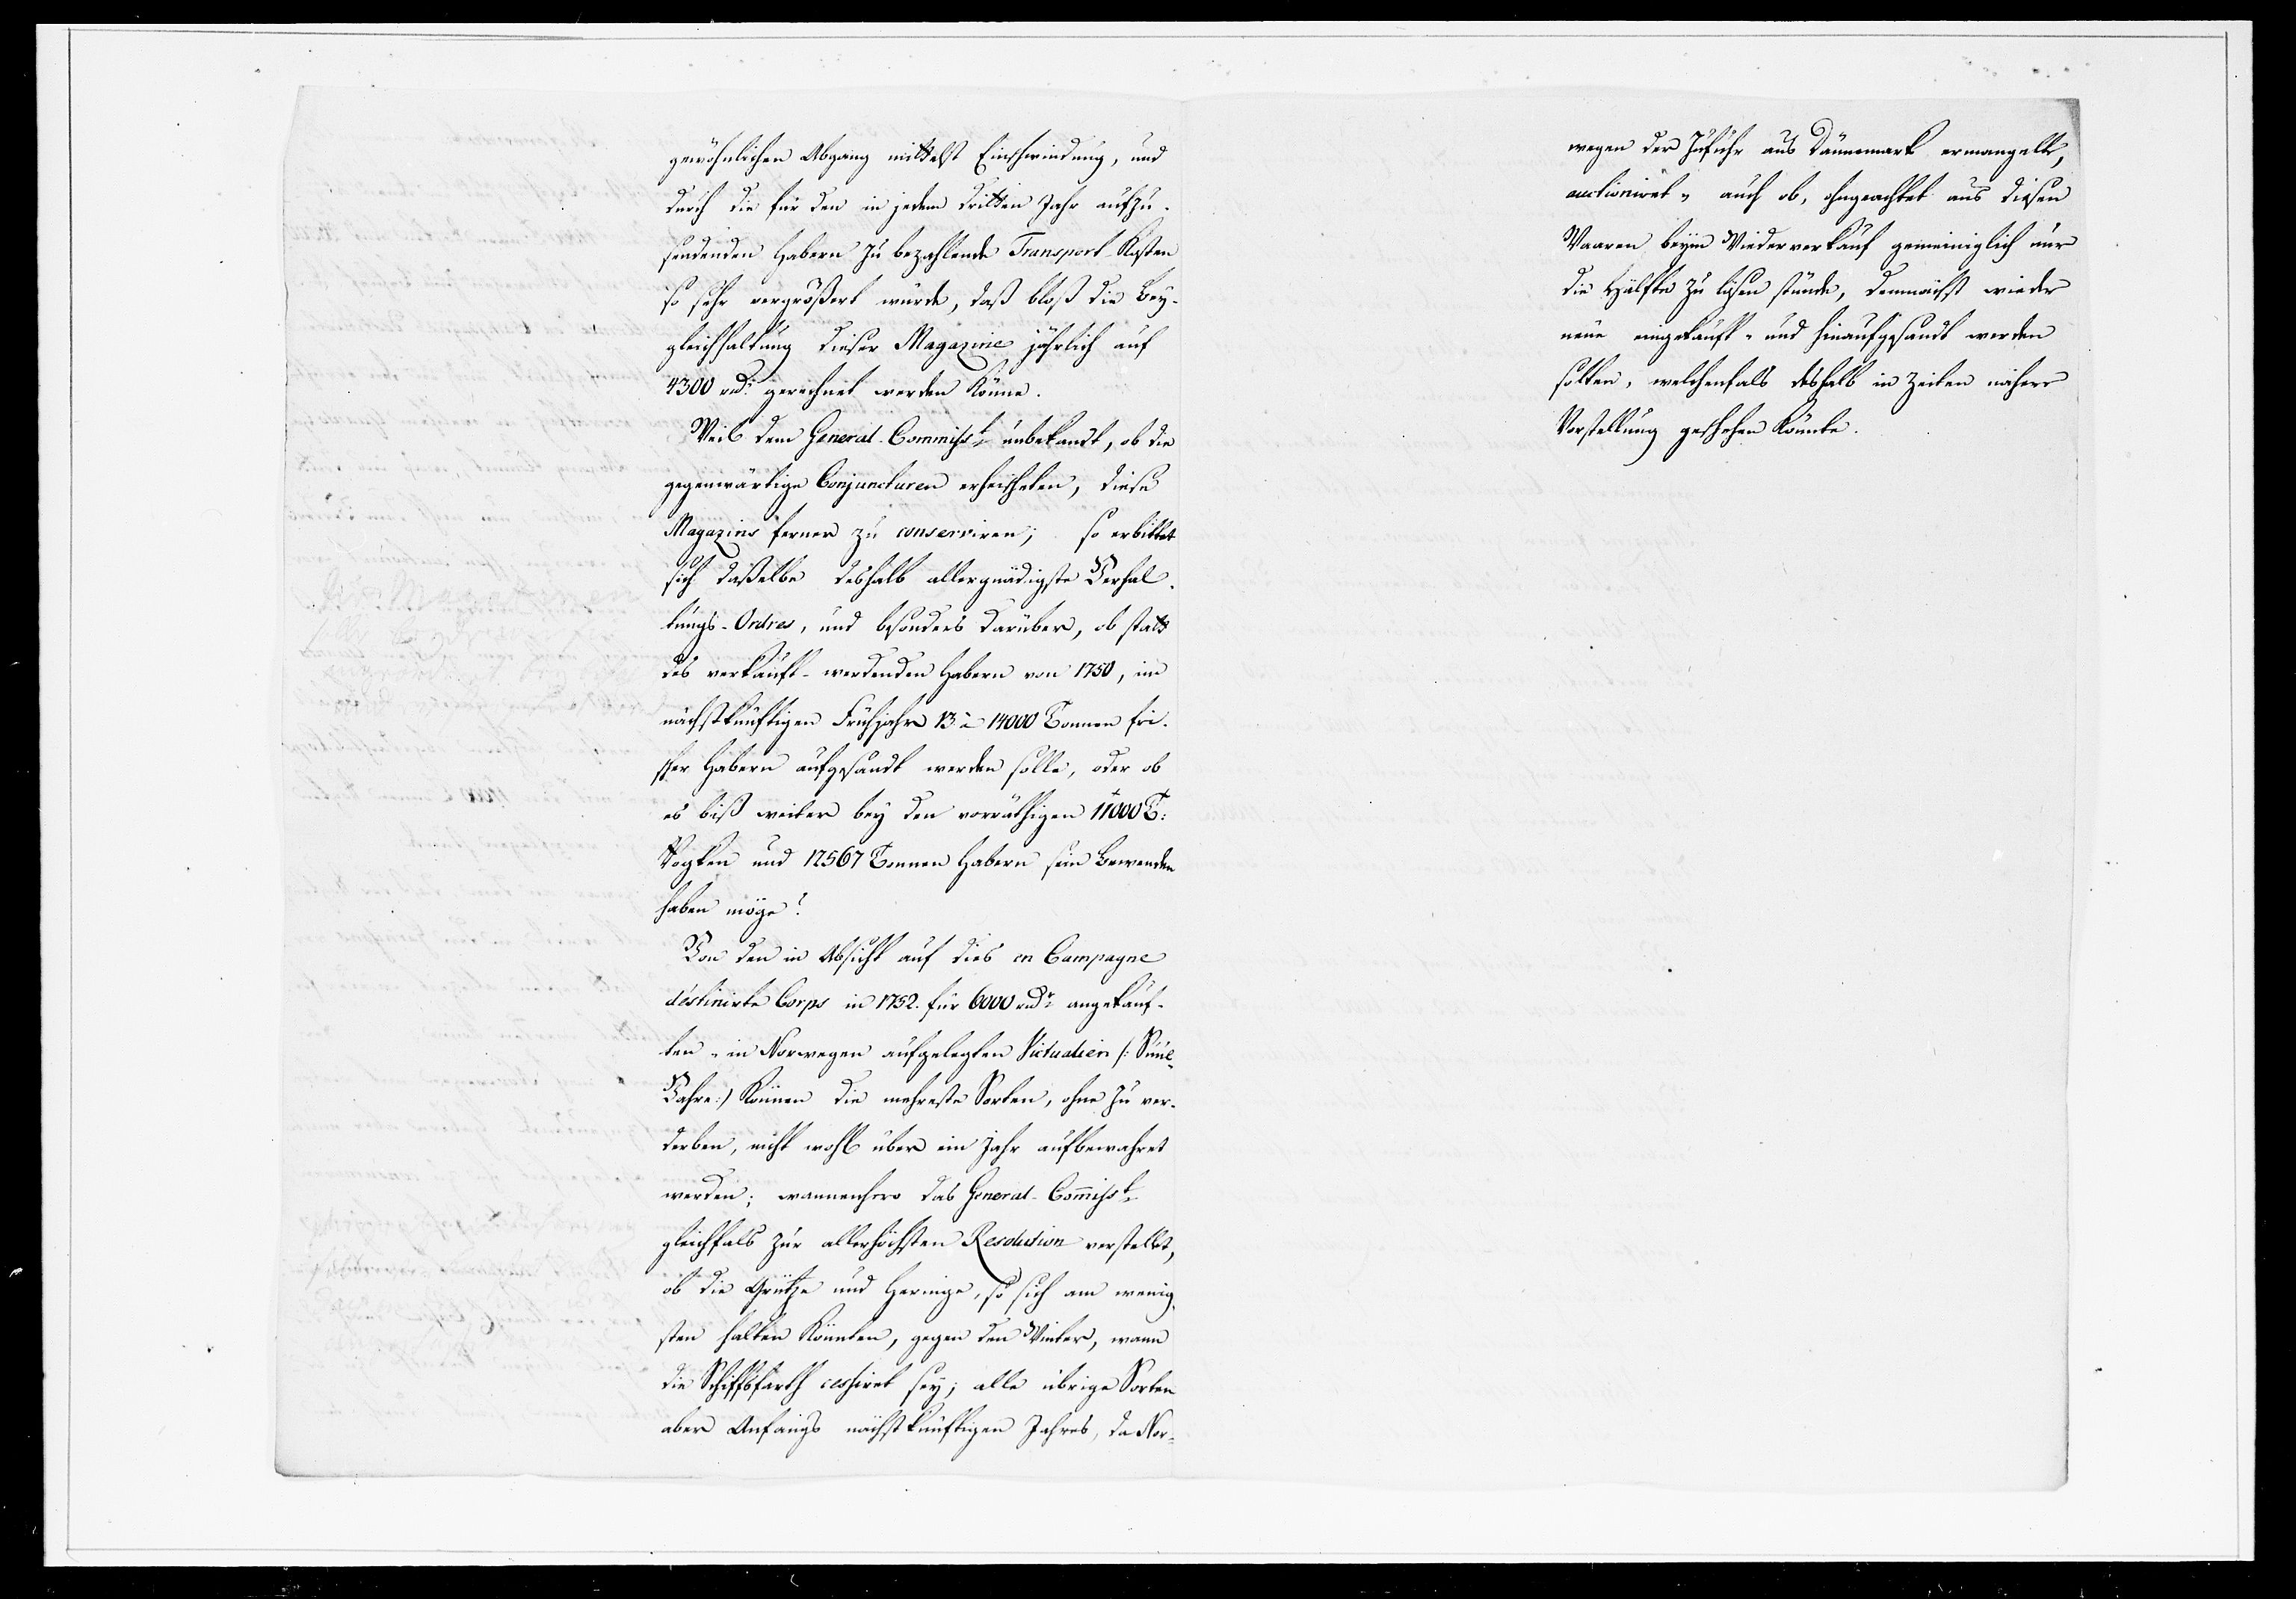 gewöhnlichen Abgang mittelst Einschwindung, und
durch die für den in jedem dritten Jahr aufzu-
sendenden Habern zu bezahlende Transport-Kosten
so sehr vergrößert würde, daß bloß die Bey-
gleichhaltung dieser Magazine jährlich auf
4300 rd. gerechnet werden könne.
Weil dem General-Commisst. unbekandt, ob die
gegenwärtige Conjuncturen erheischeten, diese
Magazins ferner zu conserviren; so erbittet
sich daßelbe deshalb allergnädigste Verhal-
tungs-Ordres, und besonders darüber, ob statt
des verkauft-werdenden Habern von 1750, im
nächstkünftigen Frühjahr 13 à 14000 Tonnen fri-
scher Habern aufgesandt werden solle, oder ob
es biß weiter bey den vorräthigen 11000 T:
Rogken und 12567 Tonnen Habern sein Bewenden
haben möge?
Von den in Absicht auf dies en Campagne
destinirte Corps in 1752. für 6000 rdr. angekauf-
ten, in Norwegen aufgelegten Victualien /: Suul-
Vahre:/ können die mehreste Sorten, ohne zu ver-
derben, nicht wohl über ein Jahr aufbewahret
werden; wannenhero das General-Commisst.
gleichfals zur allerhöchsten Resolution verstellet,
ob die Grütze und Heringe, so sich am wenig-
sten halten könnten, gegen den Winter, wann
die Schiffsfarth cessiret sey; alle übrige Sorten
aber Anfangs nächstkünftigen Jahres, da Nor-
wegen der Zufuhr aus Dännemark ermangelte,
auctioniret, auch ob, ohngeachtet aus diesen
Waaren beym Wiederverkauf gemeiniglich nur
die Hälfte zu lösen stünde, demnächst wieder
neue eingekauft- und hinaufgesandt werden
solten, welchenfals deshalb in Zeiten nähere
Vorstellung geschehen könnte.